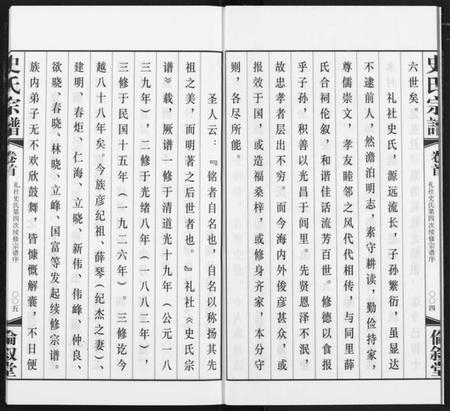 史氏宗譜
卷首
礼社史氏第四次续修宗谱序
〇〇四
倫敘堂
六世矣。
礼社史氏，源远流长，子孙繁衍，虽显达
不逮前人，然澹泊明志，素守耕读，勤俭持家，
尊儒崇文，孝友睦邻之风代代相传，与同里薛
氏合祠伦叙，和谐佳话流芳百世。修德以食报
乎子孙，积善以光昌于闾里。先贤恩泽不泯，
故忠孝者层出不穷。而今海内外俊彦甚众，或
报效于国，或造福桑梓，或修身齐家，本分守
则，各尽所能。
圣人云：『铭者自名也，自名以称扬其先
祖之美，而明著之后世者也。』礼社《史氏宗
谱》载，厥谱一修于清道光十九年（公元一八
三九年），二修于光绪八年（一八八二年），
三修于民国十五年（一九二六年）。三修迄今
越八十八年矣。今族彦纪祖、薛琴（纪杰之妻）、
建明、春炬、仁海、立晓、新伟、伟峰、仲良、
欲晓、春晓、林晓、立峰、国富等发起续修宗谱。
族内弟子无不欢欣鼓舞，皆慷慨解囊，不日便
史氏宗譜
卷首
礼社史氏第四次续修宗谱序
〇〇五
倫敘堂